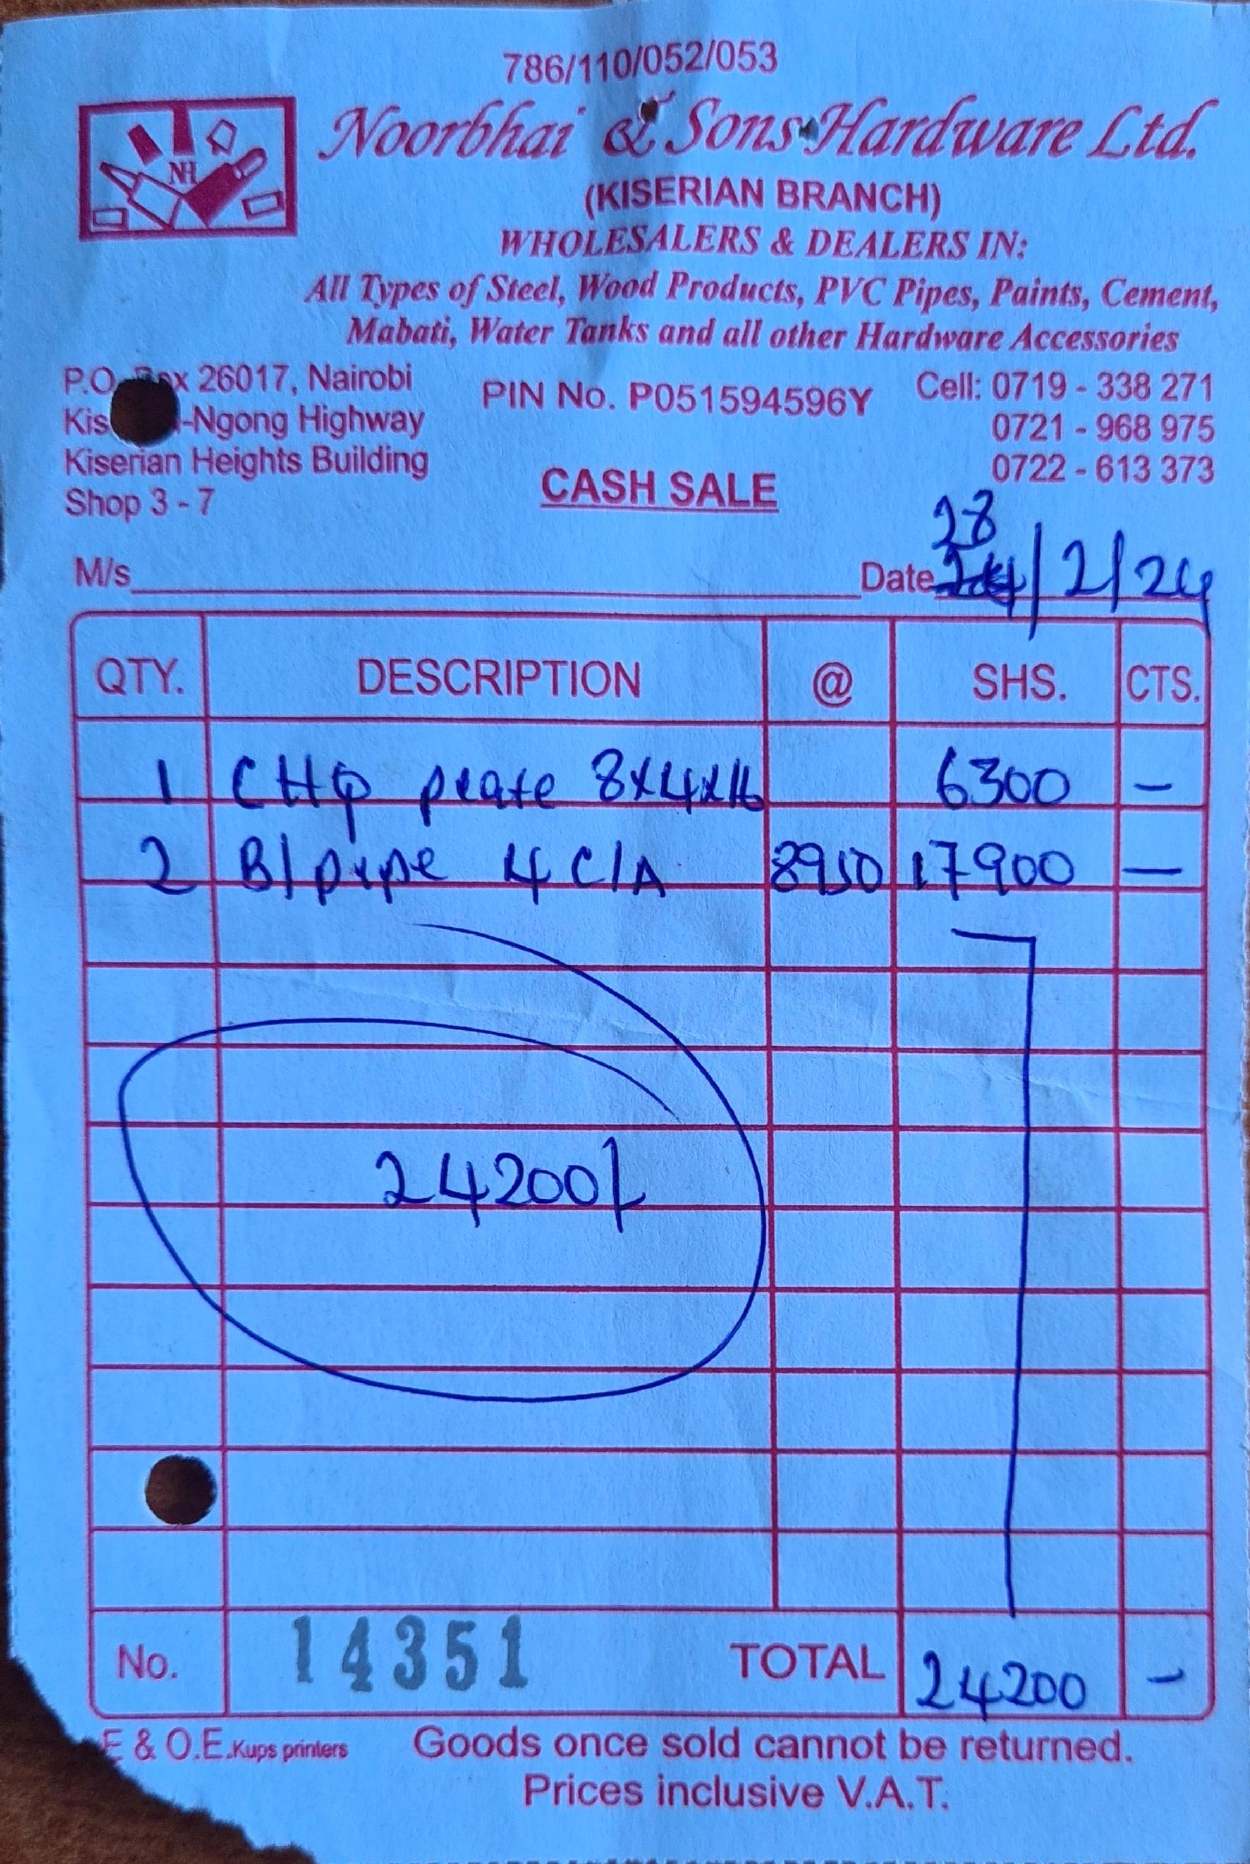 786/110/052/053
NH
Noorbhai & Sons Hardware Ltd.
(KISERIAN BRANCH)
WHOLESALERS & DEALERS IN:
All Types of Steel, Wood Products, PVC Pipes, Paints, Cement,
Mabati, Water Tanks and all other Hardware Accessories
P.O. Box 26017, Nairobi
-Ngong Highway
Kiserian Heights Building
Shop 3 - 7
PIN No. P051594596Y
Cell: 0719 - 338 271
0721 - 968 975
0722 - 613 373
CASH SALE
M/s
Date 28/2/24
QTY. DESCRIPTION @ SHS. CTS.
1 CHQ plate 8x4x16 6300 -
2 B/pipe 4 C/A 8950 17900 -
24200/-
No. 14351 TOTAL 24200 -
E & O.E. Kups printers
Goods once sold cannot be returned.
Prices inclusive V.A.T.